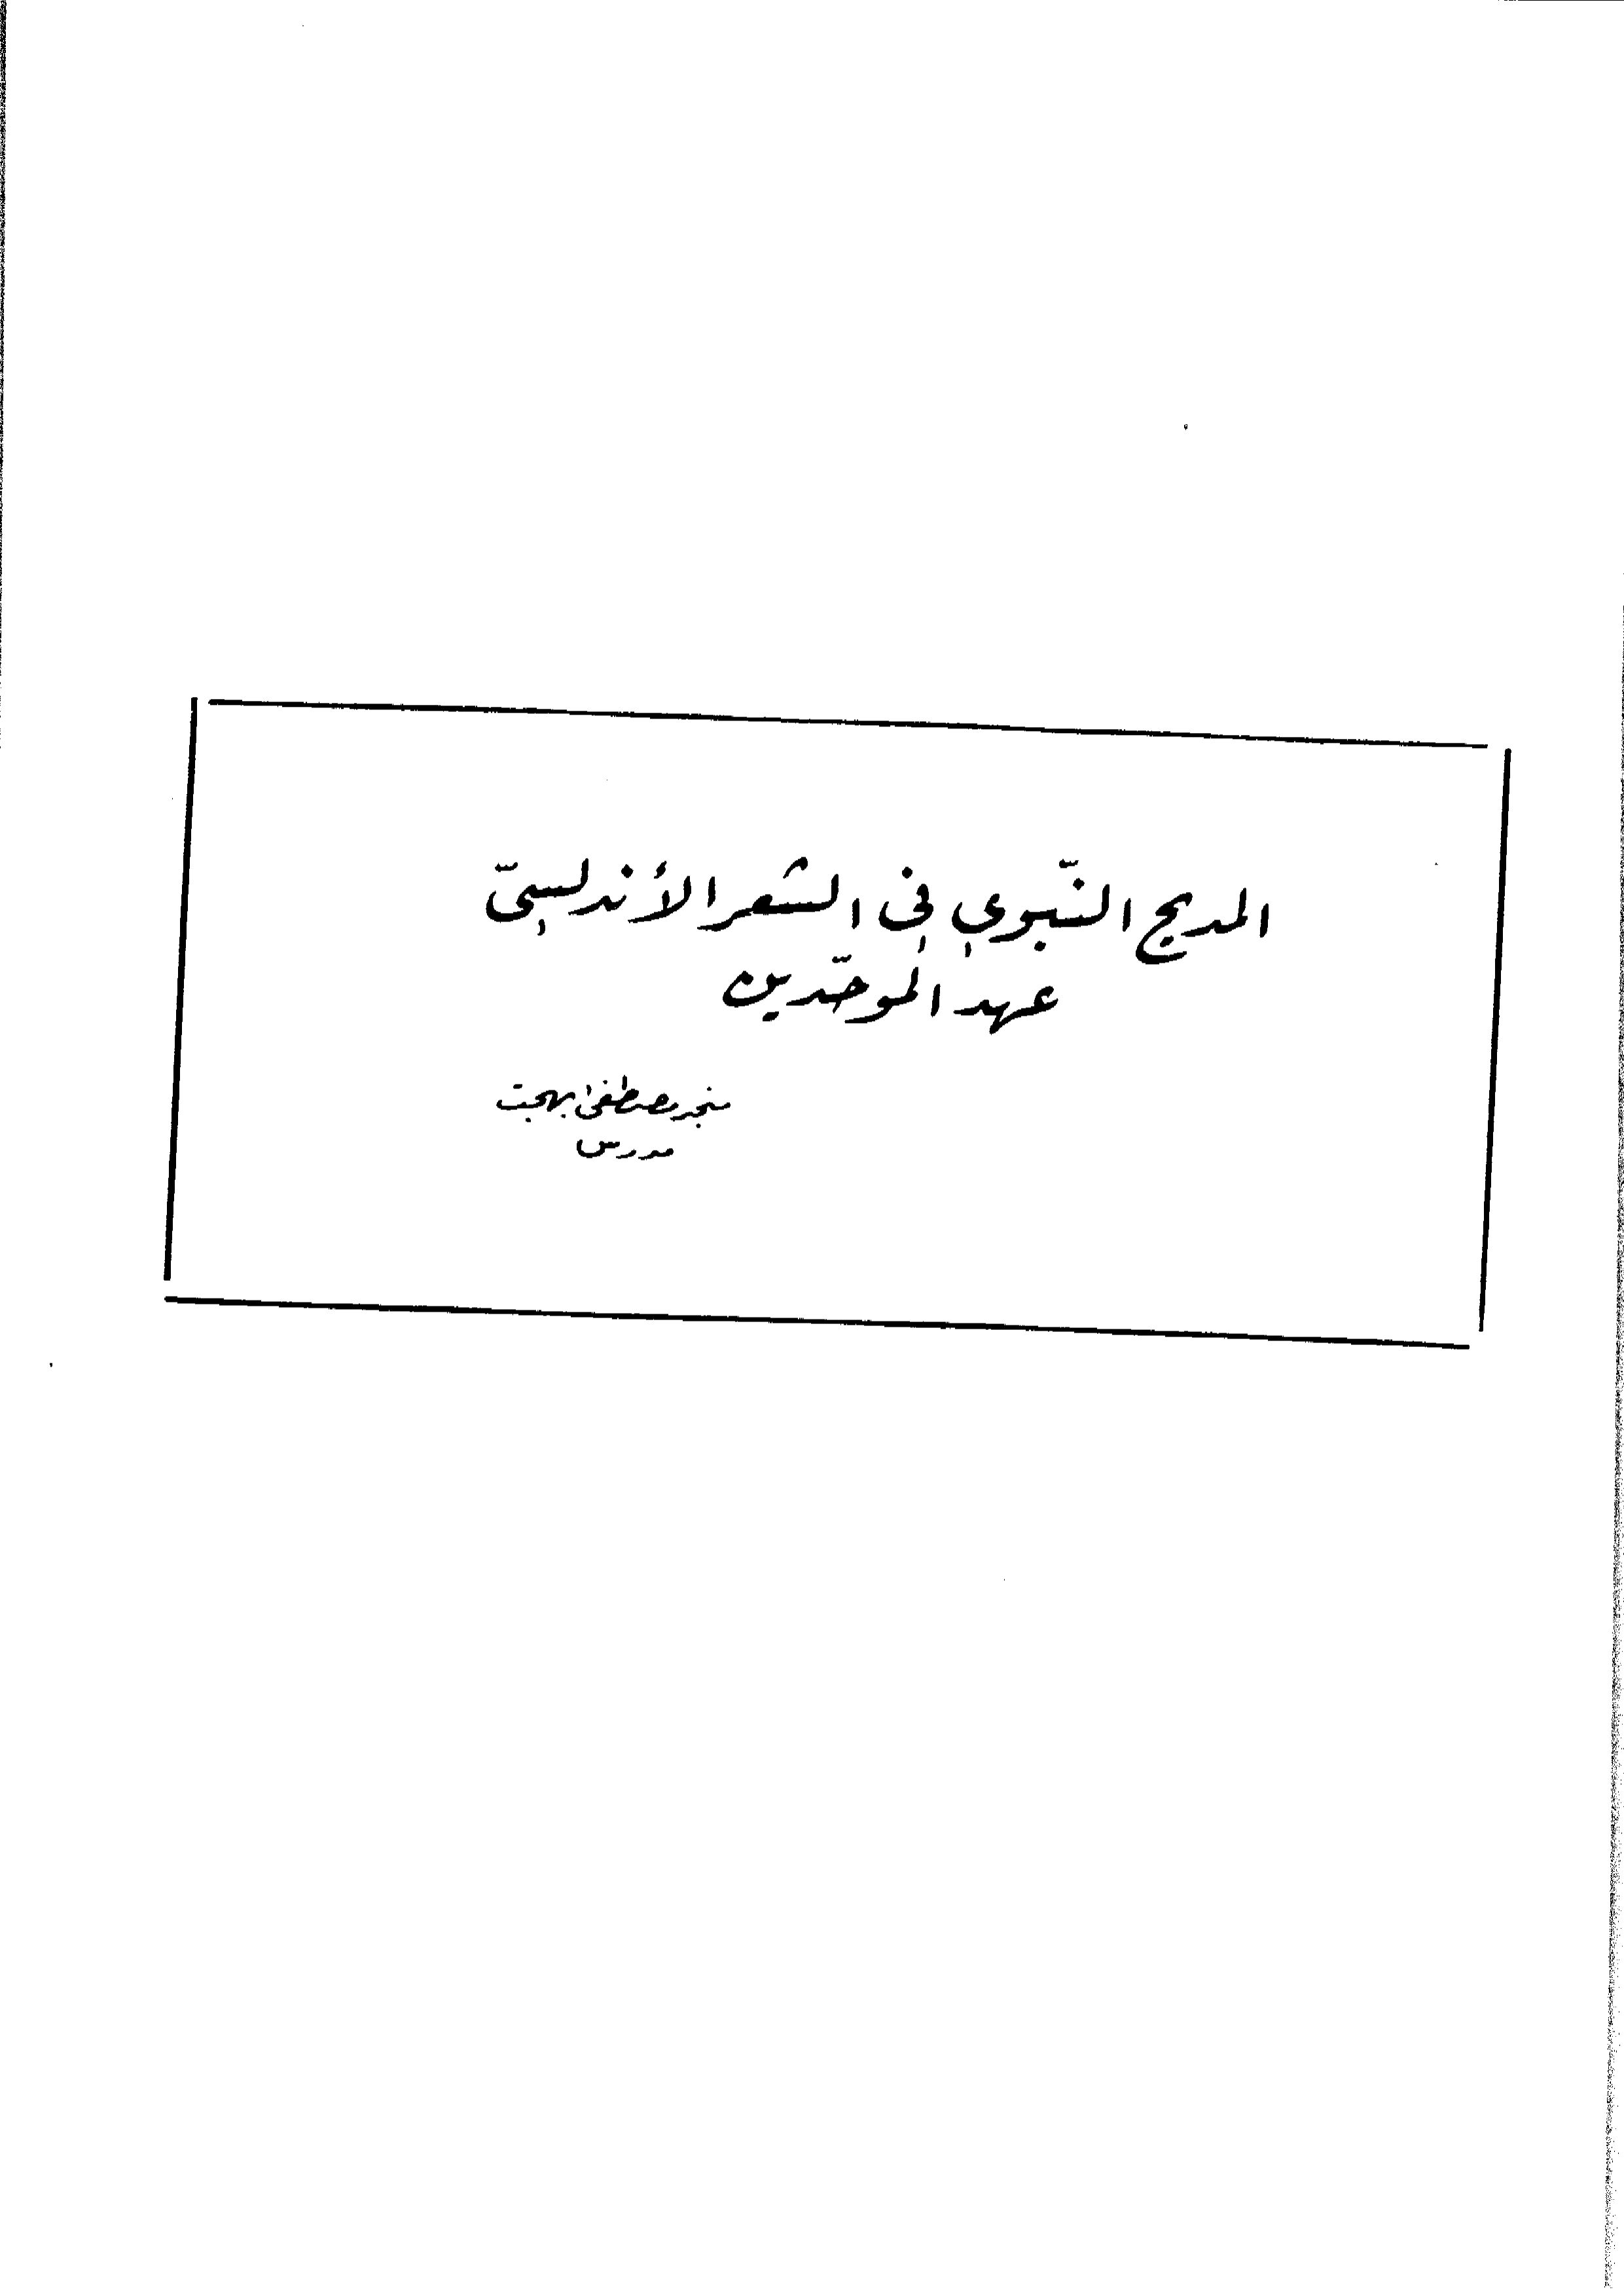 المديح النّبوي في الشعر الأندلسيّ
عهد الموحّدين
منجد مصطفى بهجت
مدرس